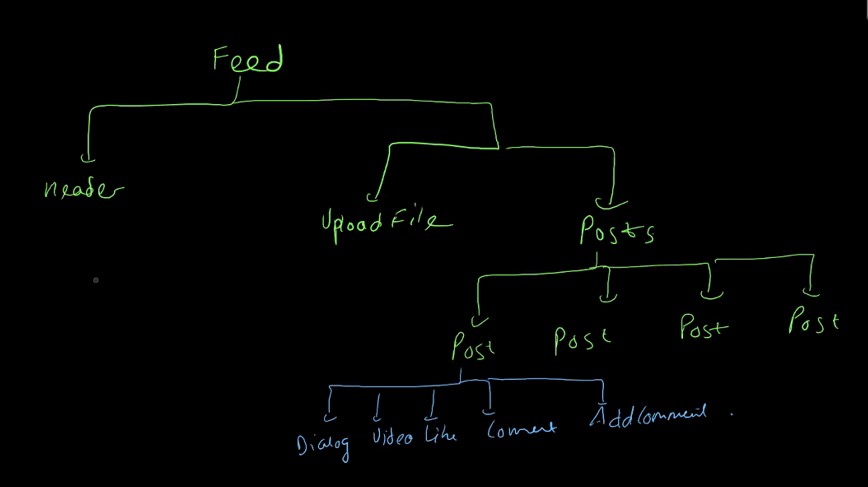 Feed
Header
Upload File
Posts
Post
Post
Post
Post
Dialog Video Like Coment AddComment .